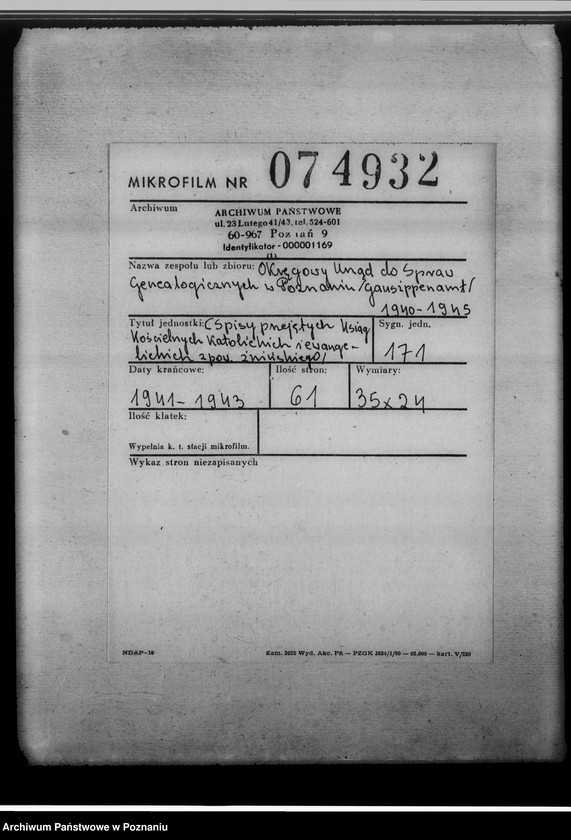 MIKROFILM NR 074932
Archiwum
ARCHIWUM PAŃSTWOWE
ul. 23 Lutego 41/43, tel. 524-601
60-967 Poznań 9
Identyfikator - 000001169
Nazwa zespołu lub zbioru: Okręgowy Urząd do Spraw
Genealogicznych w Poznaniu /Gausippenamt/
1940-1945
Tytuł jednostki: (Spisy przejętych ksiąg
Kościelnych katolickich i ewange-
lickich z pow. żnińskiego/
Sygn. jedn.
171
Daty krańcowe:
1941-1943
Ilość stron:
61
Wymiary:
35x24
Ilość klatek:
Wypełnia k. t. stacji mikrofilm.
Wykaz stron niezapisanych
NDAP-16
Zam. 2522 Wyd. Akc. Pń — PZGK
kart. V/280
Archiwum Państwowe w Poznaniu